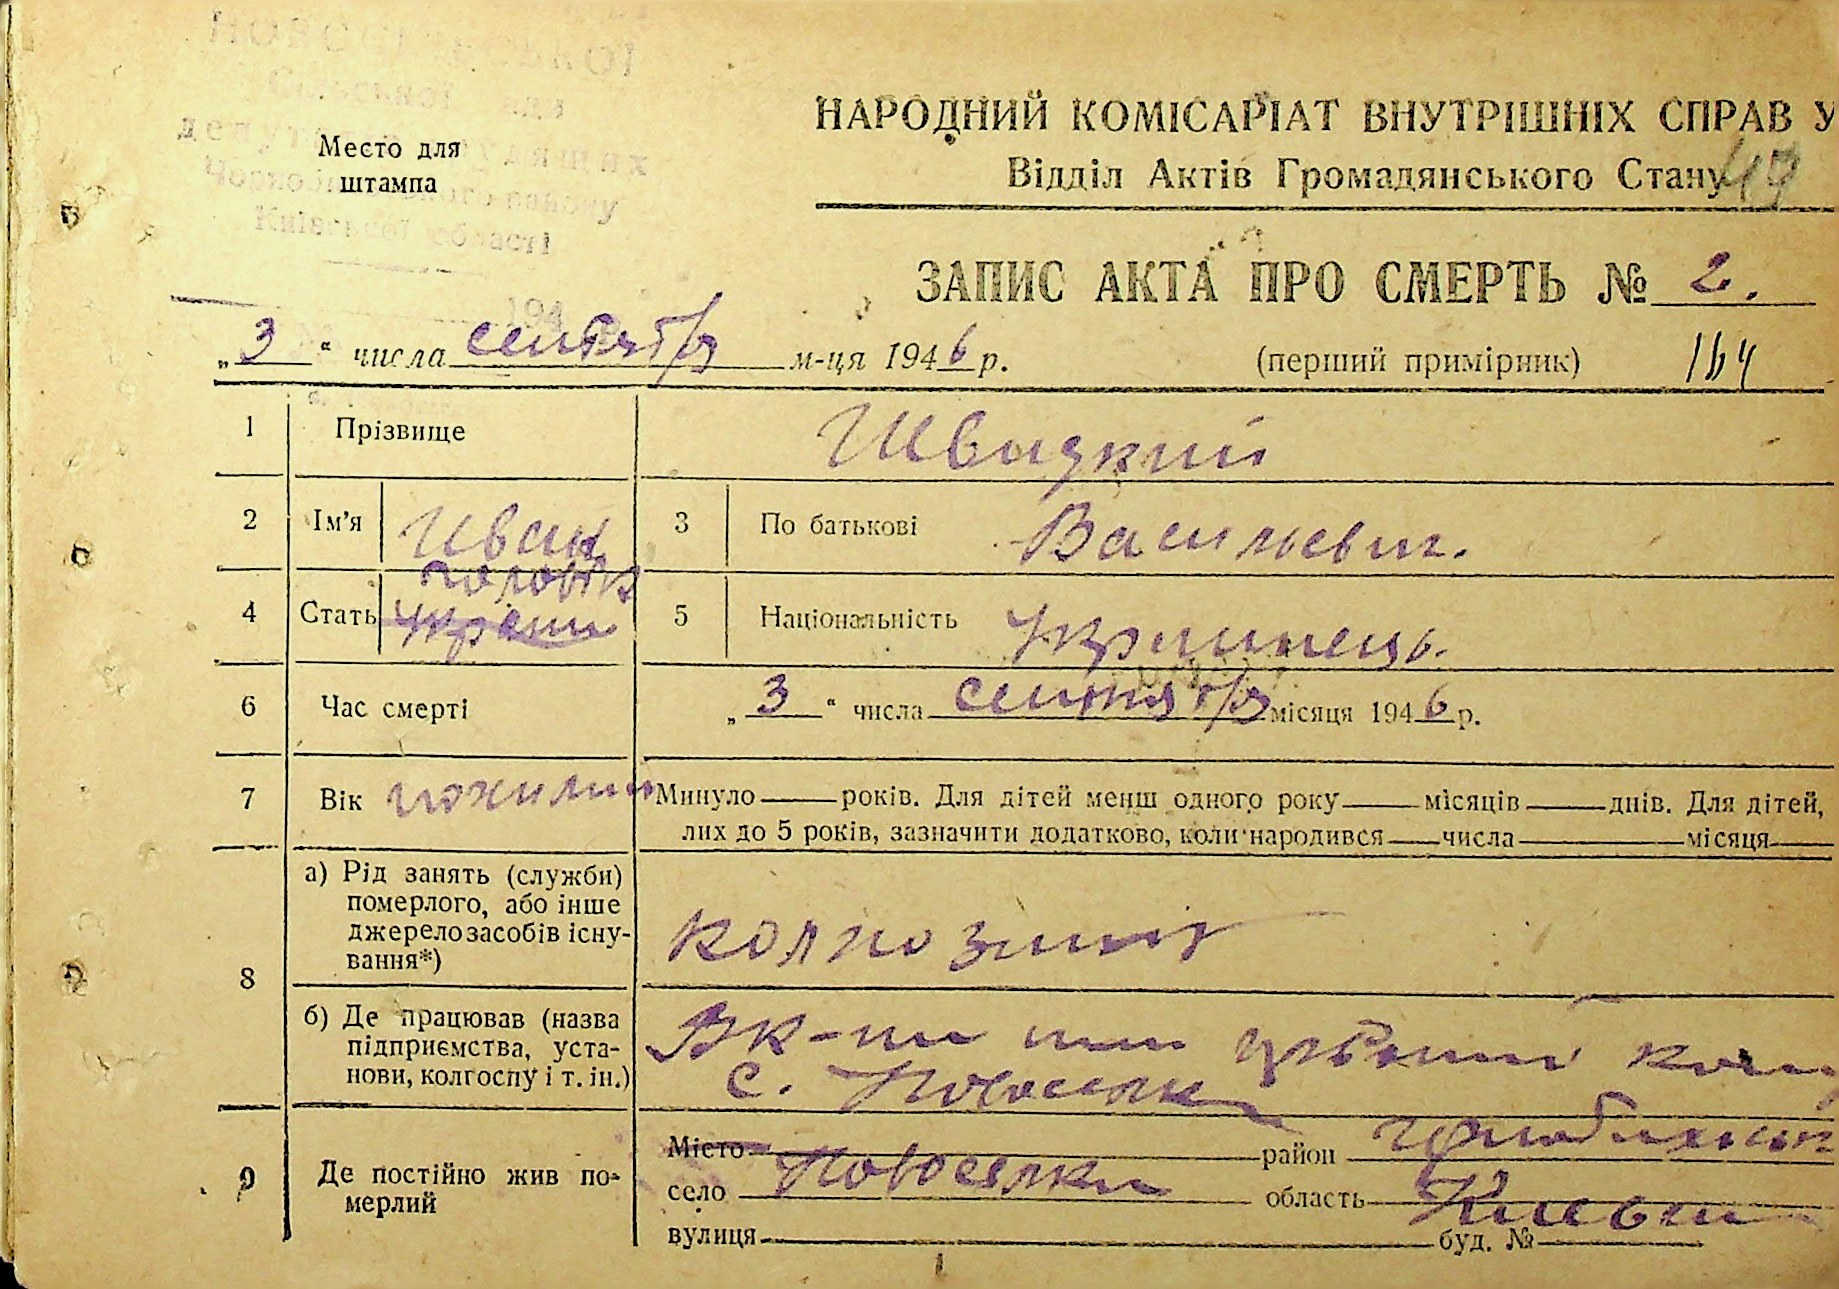 Место для
штампа
Київської області
НАРОДНИЙ КОМІСАРІАТ ВНУТРІШНІХ СПРАВ У
Відділ Актів Громадянського Стану
ЗАПИС АКТА ПРО СМЕРТЬ № 2.
„3“ числа сентября м-ця 1946 р. (перший примірник) 164
1 Прізвище Швидкий
2 Ім'я Иван 3 По батькові Васильевич.
чоловік
4 Стать 5 Національність Українець.
6 Час смерті „3“ числа сентября місяця 1946 р.
7 Вік пожилий Минуло років. Для дітей менш одного року місяців днів. Для дітей,
лих до 5 років, зазначити додатково, коли народився числа місяця
а) Рід занять (служби)
померлого, або інше
джерело засобів існу-
вання*)
колхозник
8
б) Де працював (назва
підприємства, уста-
нови, колгоспу і т. ін.)
с. Новоселки
9 Де постійно жив по-
мерлий
Місто район
село Новоселки область Киевск
вулиця буд. №